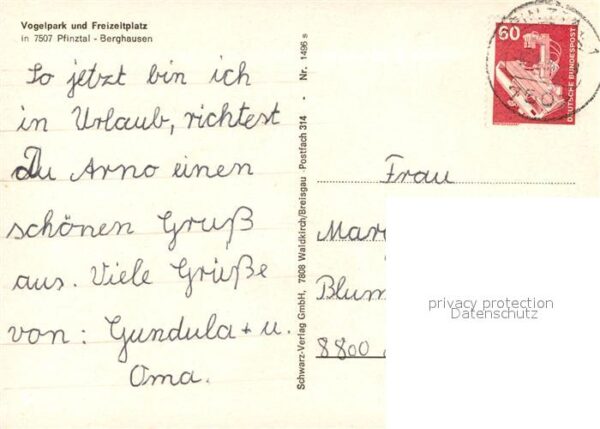 Vogelpark und Freizeitplatz
in 7507 Pfinztal - Berghausen
So jetzt bin ich
in Urlaub, richtest
Du Arno einen
schönen Gruß
aus. Viele Grüße
von: Gundula + u.
Oma.
Schwarz-Verlag GmbH, 7808 Waldkirch/Breisgau · Postfach 314 · Nr. 1496 s
60
DEUTSCHE BUNDESPOST
Frau
Mar
Blum
8800
privacy protection
Datenschutz